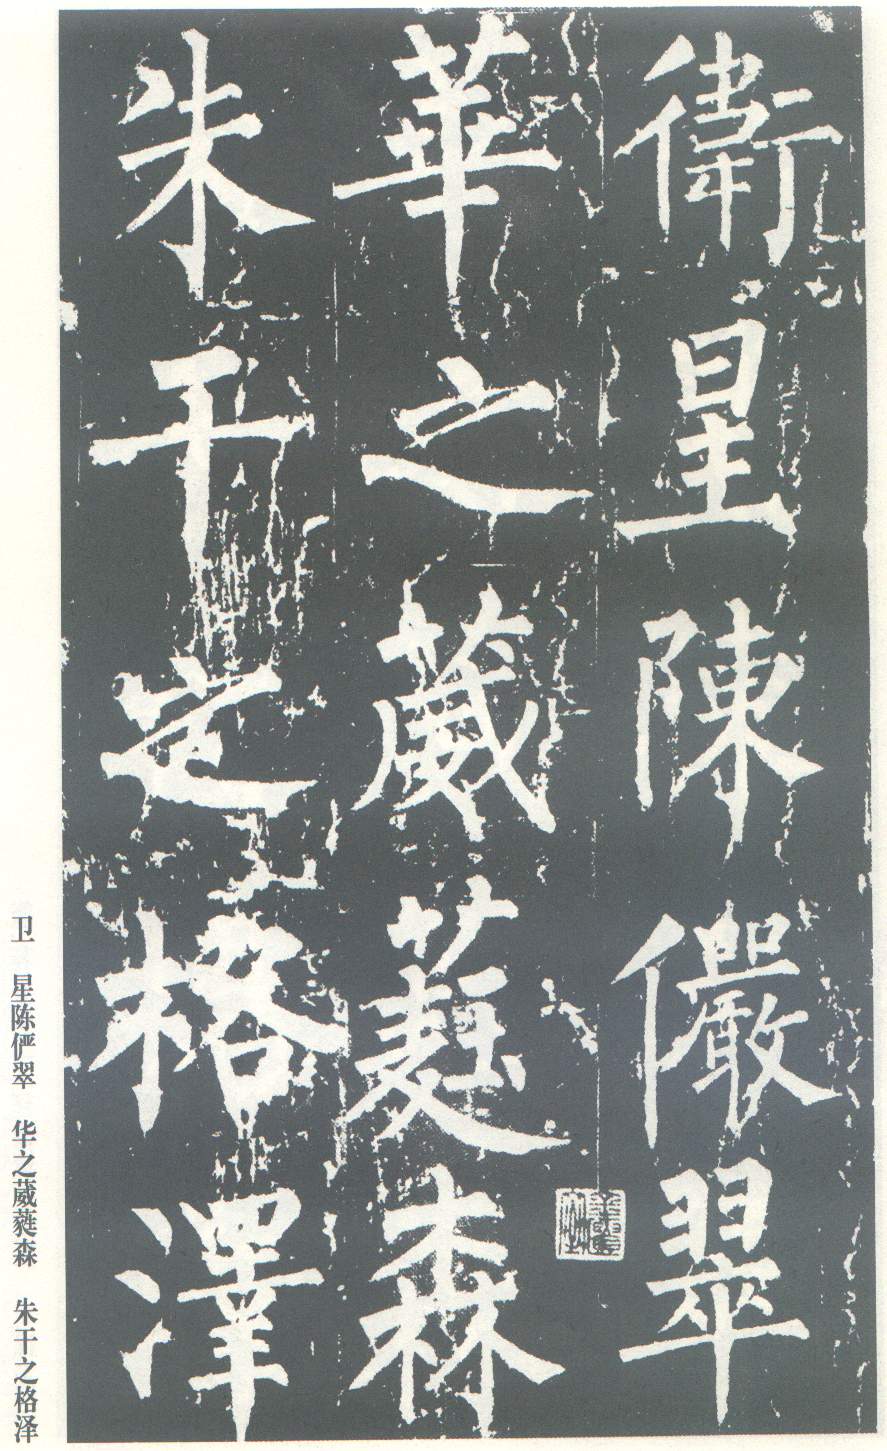 衛星陳儼翠
華之葳蕤森
朱干定格澤
卫 星陈俨翠 华之葳蕤森 朱干之格泽